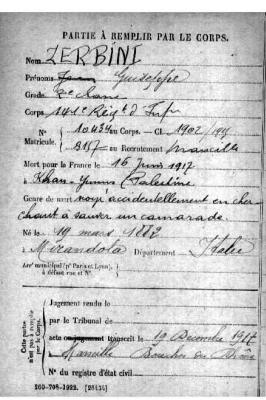 PARTIE À REMPLIR PAR LE CORPS.
Nom ZERBINI
Prénoms Guiseppe
Grade 2e classe
Corps 141e Rég t d'Inf ie
N° Matricule. 10434 au Corps. — Cl. 1902 / 1915
3157 au Recrutement Marseille
Mort pour la France le 16 Juin 1917
à Khan-Yunus Palestine
Genre de mort noyé accidentellement en cher
chant à sauver un camarade.
Né le 19 mars 1882
à Mirandola Département Italie
Arr t municipal (p r Paris et Lyon),
à défaut rue et N°.
Cette partie n'est pas à remplir par le Corps.
Jugement rendu le
par le Tribunal de
acte ou jugement transcrit le 19 Décembre 1917
à Marseille Bouches du Rhône
N° du registre d'état civil
260-708-1922. [26434]